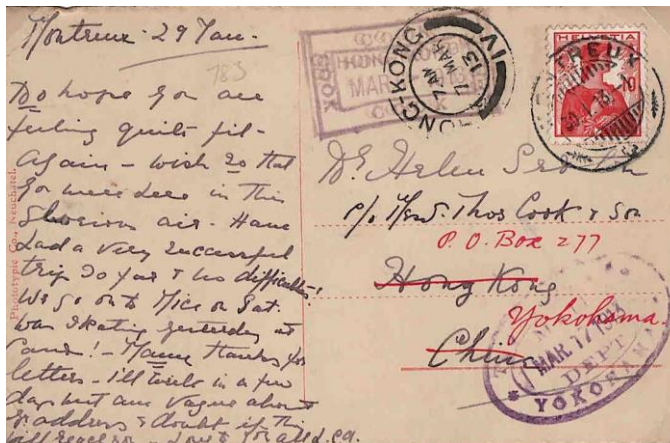 Montreux. 29 Jan.
783
Do hope you are
feeling quite fit
again - wish so that
you were here in this
glorious air. Have
had a very successful
trip so far & no difficulties!
We go on to Nice on Sat.
Was skating yesterday at
Caux! - Many thanks for
letters - I'll write in a few
days but am vague about
yr. address & doubt if this
will reach you - Love to you all
Phototypie Co., Neuchatel.
HONG-KONG
7 AM
7 MAR
13
IV
COOK
HONG KONG
MAR
HELVETIA
10
TREUX
Dr Helen
c/o Messrs. Thos Cook & Son
P.O. Box 277
Hong Kong
Yokohama
China
MAR 17 1913
DEPT
YOKOHAMA